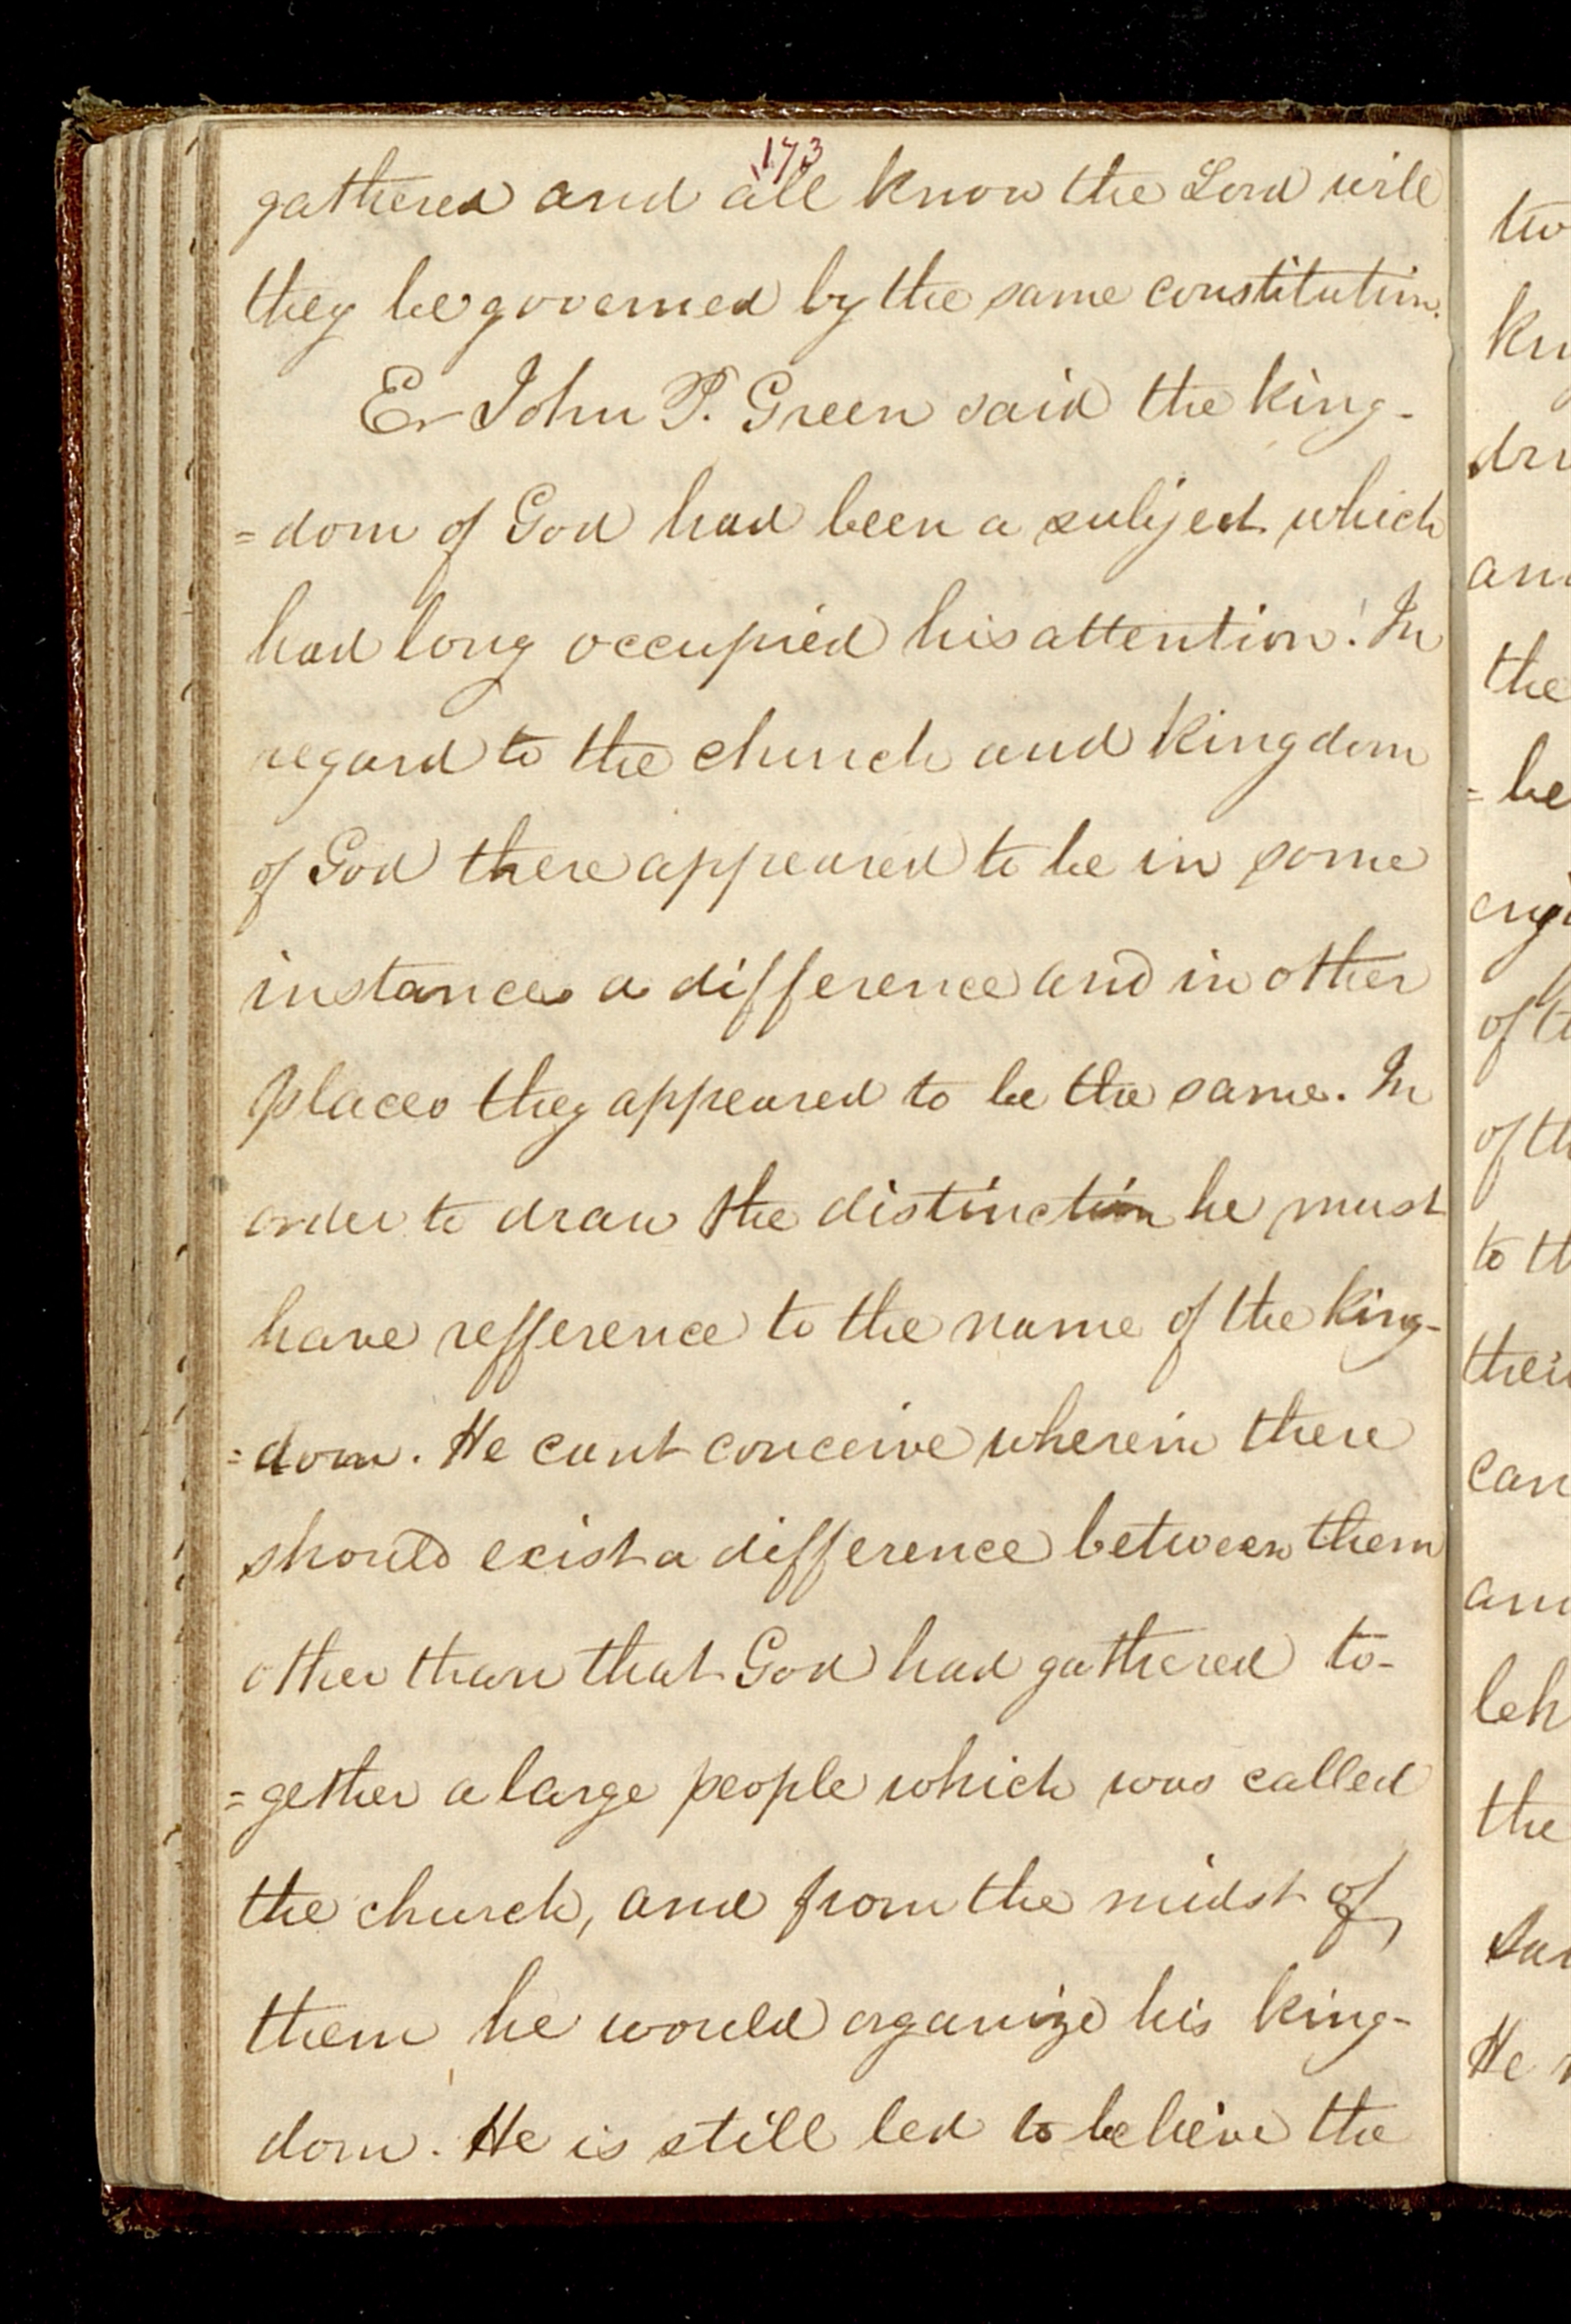 173
gathered and all know the Lord will
they be governed by the same constitution.
Er John P. Green said the king-
=dom of God had been a subject which
had long occupied his attention. In
regard to the church and kingdom
of God there appeared to be in some
instances a difference and in other
places they appeared to be the same. In
order to draw the distinction he must
have refference to the name of the king-
=dom. He cant conceive wherein there
should exist a difference between them
other than that God had gathered to-
=gether a large people which was called
the church, and from the midst of
them he would organize his king-
dom. He is still led to believe the
the
be
of th
to th
can
the
He